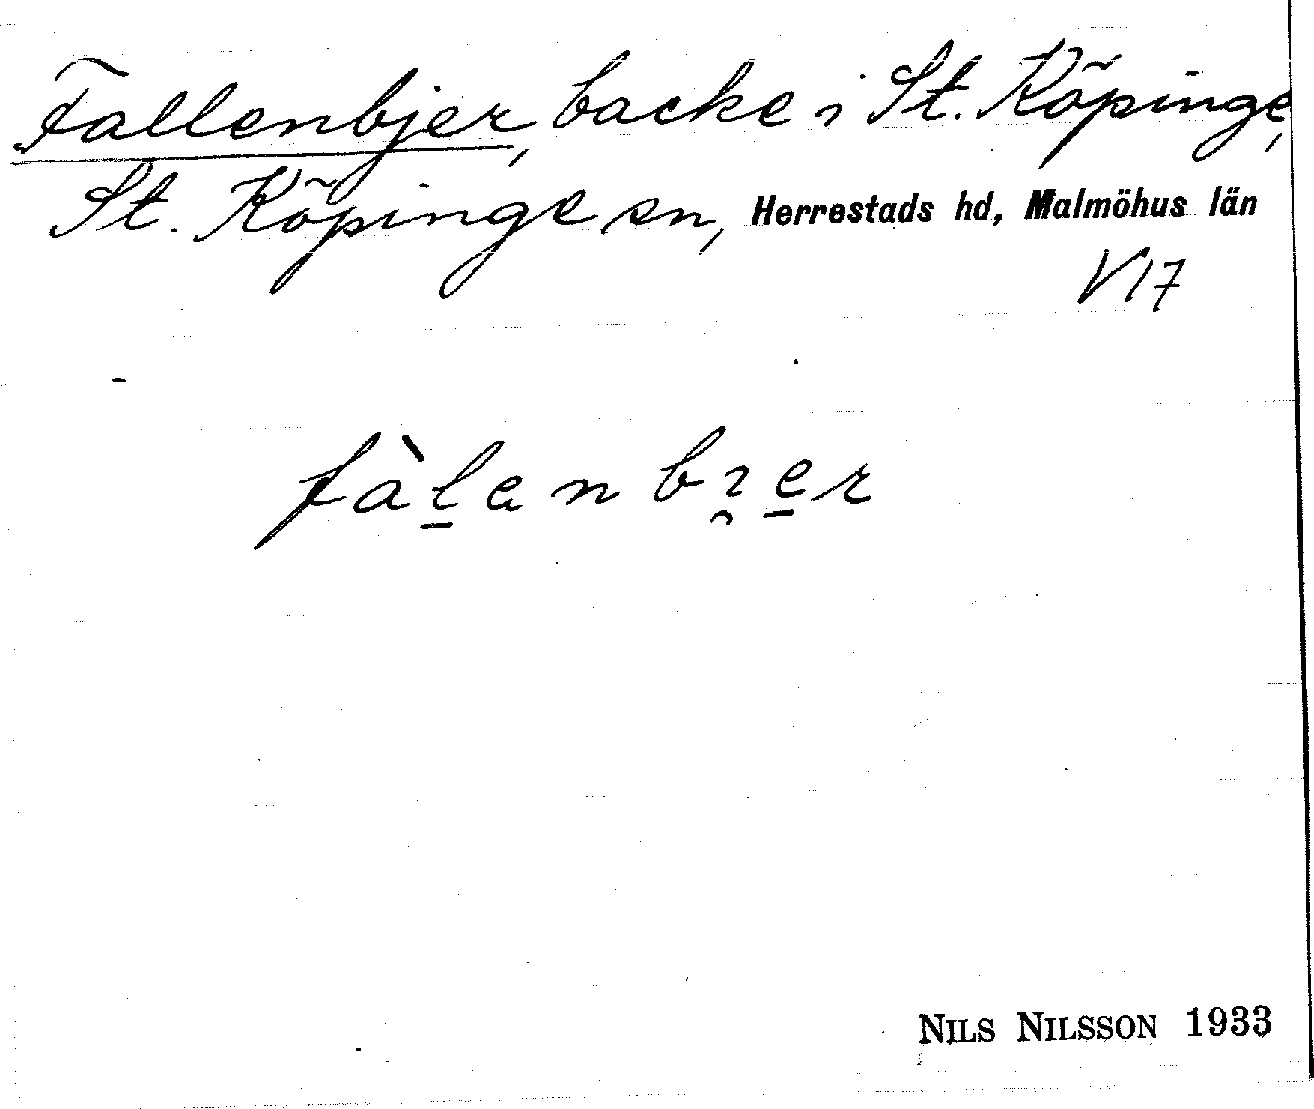 Fallenbjer, backe i St. Köpinge,
St. Köpinge sn, Herrestads hd, Malmöhus län
V17
fàl̠en bı̯e̠r
NILS NILSSON 1933